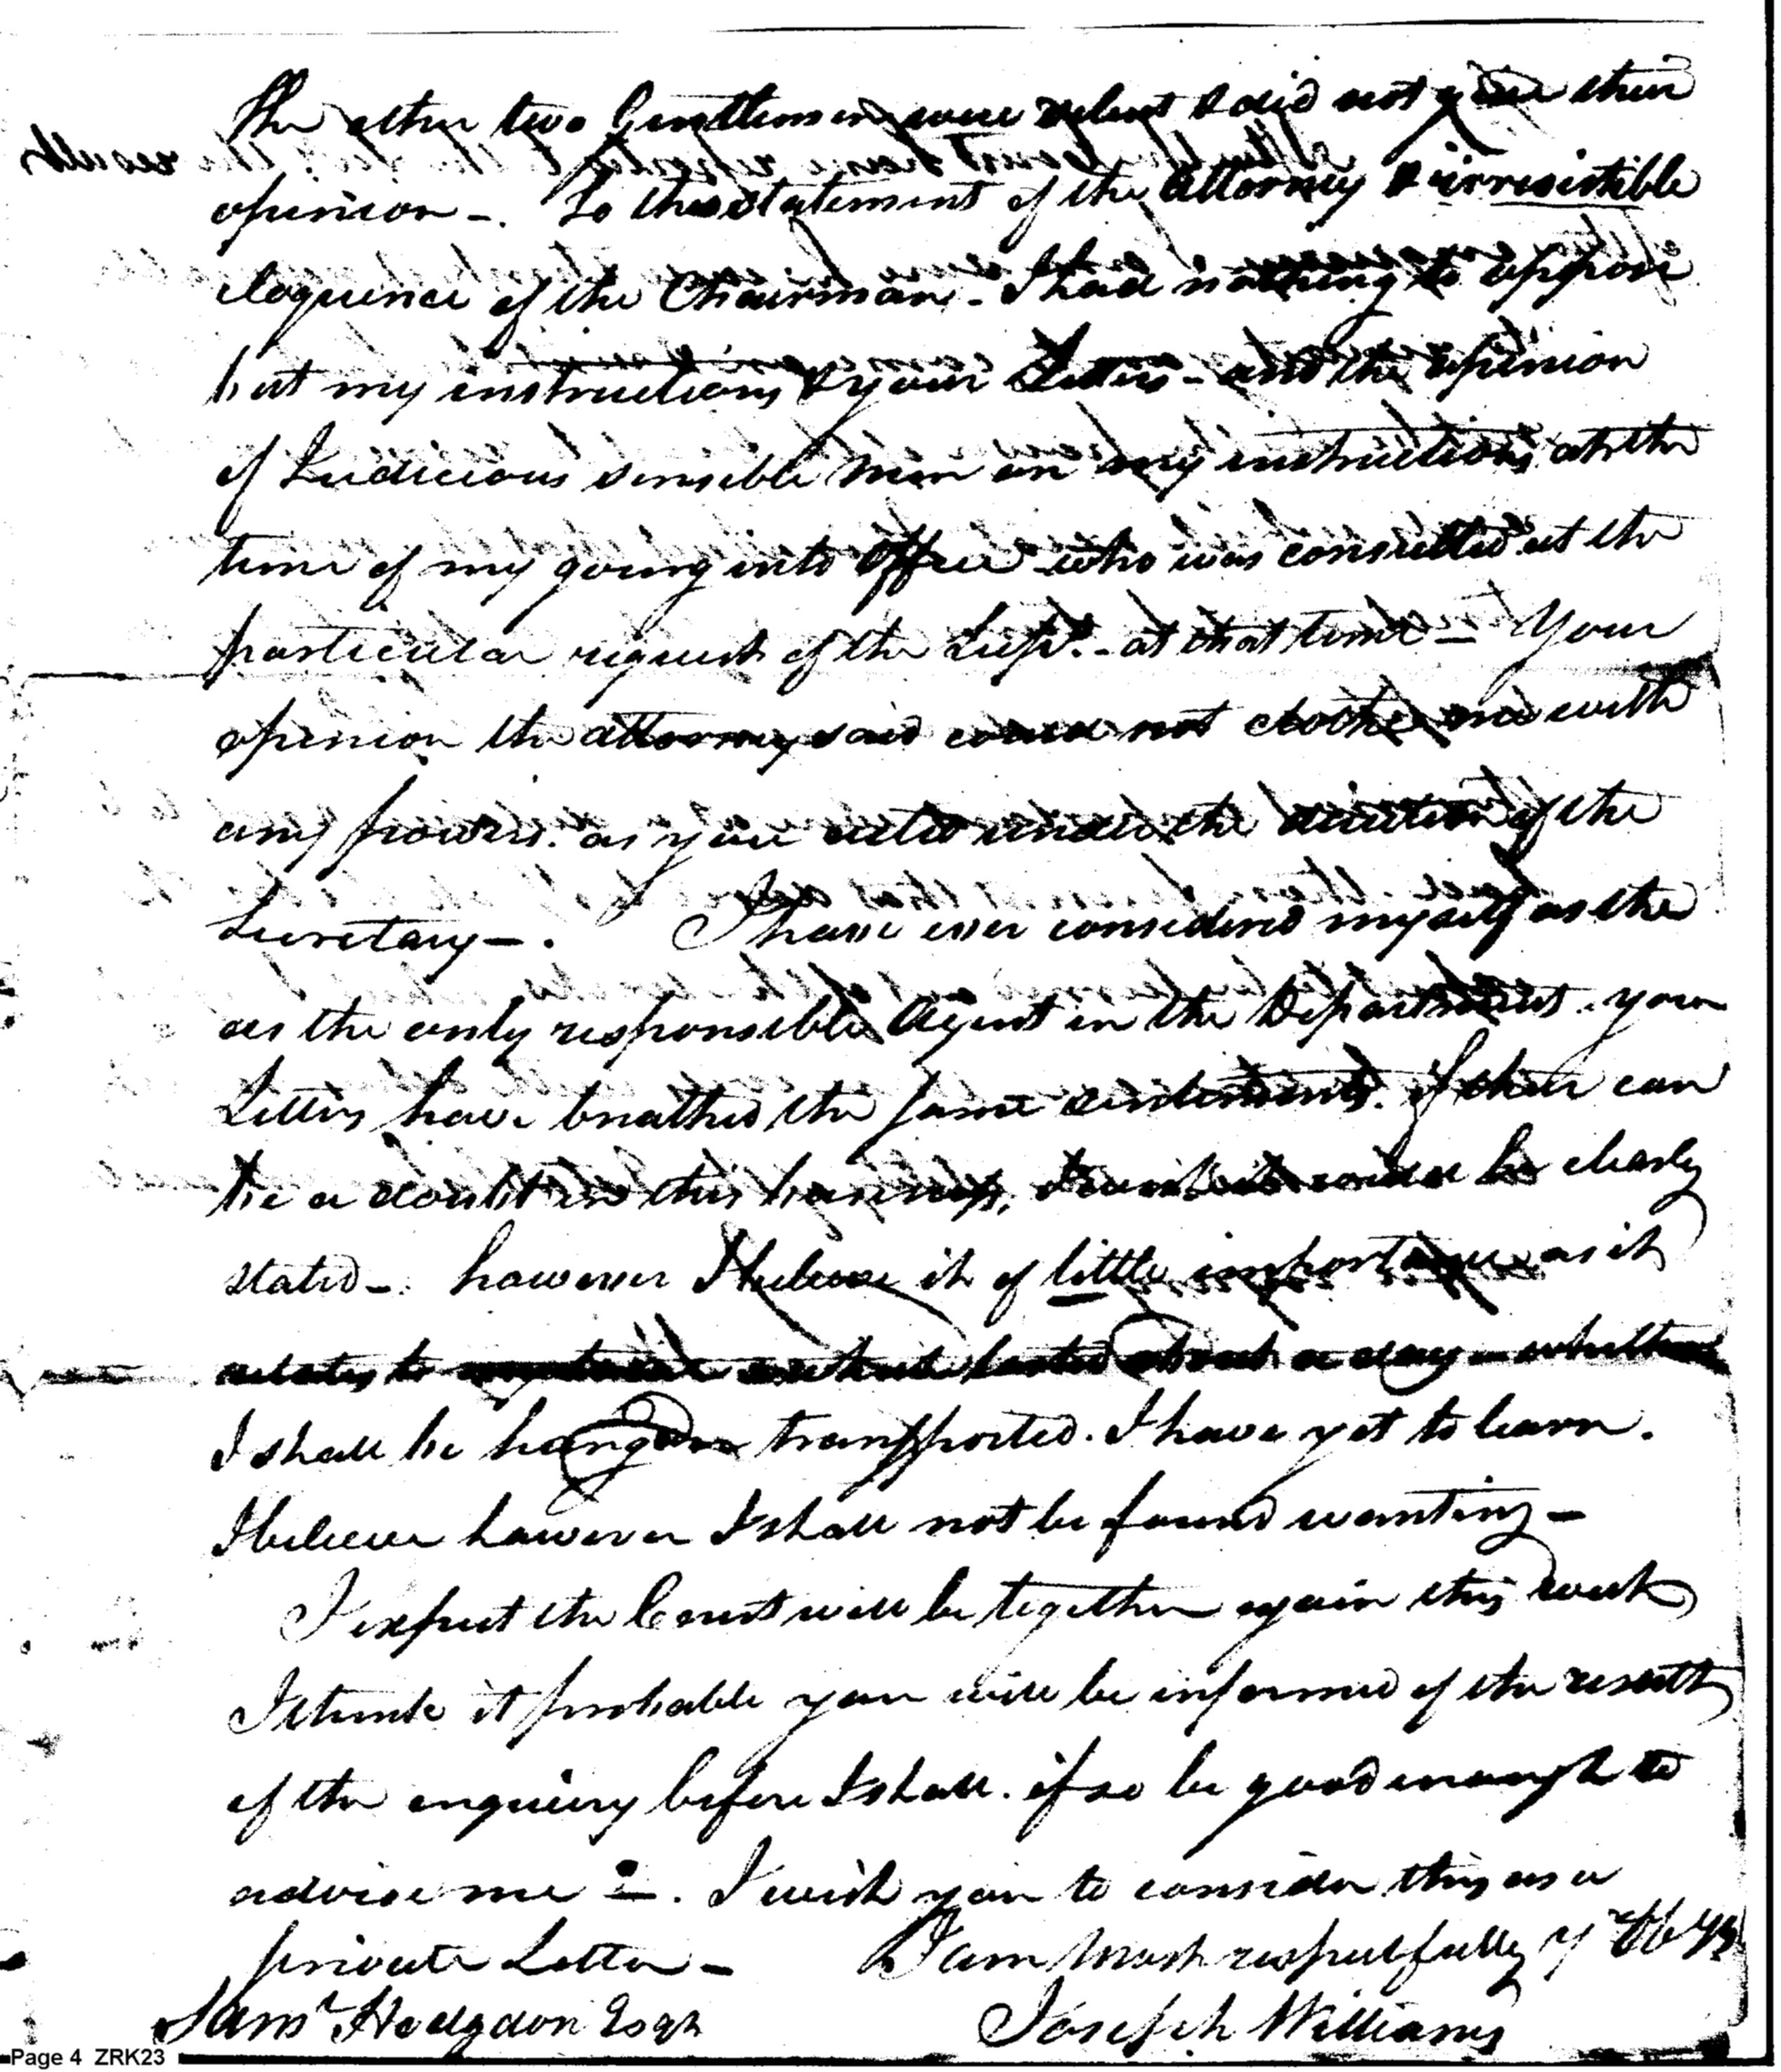 The other two Gentlemen were silent & did not give their
opinion -. To the statement of the Attorney & irresistible
eloquence of the Chairman - I had nothing to oppose
but my instructions & your Letters - and the opinion
of Judicious sensible men on my instructions at the
time of my going into Office who was consulted at the
particular request of the Supt. - at that time - Your
opinion the attorney said could not clothe me with
any powers. as you acted under the direction of the
Secretary -. I have ever considered myself as the
as the only responsible Agent in the Department. your
Letters have breathed the same sentiments. if their can
be a doubt in this business, I wish it could be clearly
stated -. however I believe it of little importance as it
relates to about a day - whether
I shall be hang or transported. I have yet to learn.
I believe however I shall not be found wanting -
I expect the Court will be together again this week
I think it probable you will be informed of the result
of the enquiry before I shall. if so be good enough to
advise me -. I wish you to consider this as a
private Letter - I am most respectfully
Samr Hodgdon Esqr Joseph Williams
Page 4 ZRK23